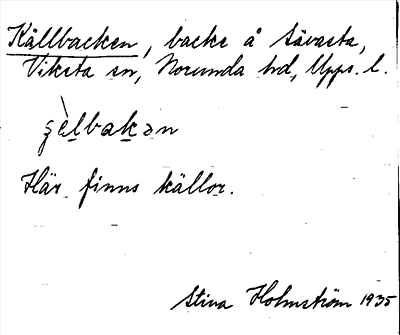 Källbacken, backe å Sävasta,
Viksta sn, Norunda hd, Upps. l.
ʂὲlbakən
Här finns källor.
Stina Holmström 1935